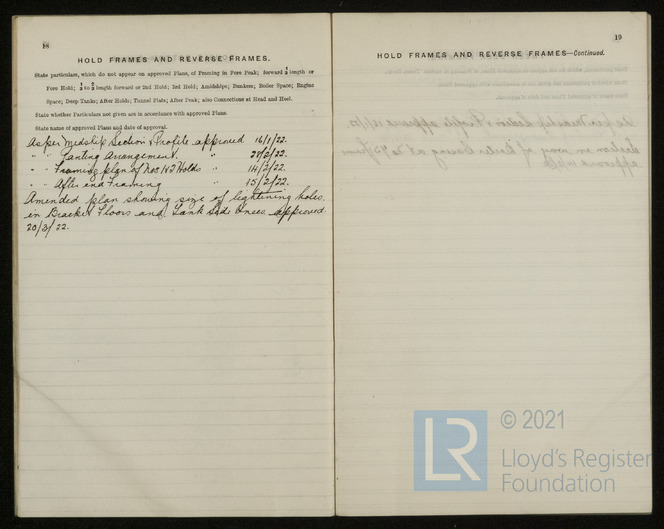 18
HOLD FRAMES AND REVERSE FRAMES.
State particulars, which do not appear on approved Plans, of Framing in Fore Peak; forward ½ length or
Fore Hold; length forward or 2nd Hold; 3rd Hold; Amidships; Bunkers; Boiler Space; Engine
Space; Deep Tanks; After Holds; Tunnel Flats; After Peak; also Connections at Head and Heel.
State whether Particulars not given are in accordance with approved Plans.
State name of approved Plans and date of approval.
As per Midship Section & Profile approved 16/1/22.
" " Panting Arrangement. " 27/2/22.
" " Framing plan of Nos 1 & 2 Holds " 14/2/22.
" " After end Framing " 15/2/22.
Amended plan showing size of lightening holes
in Bracket Floors and Tank Side Knees approved
20/3/22.
19
HOLD FRAMES AND REVERSE FRAMES—Continued.
LR
© 2021
Lloyd's Register
Foundation